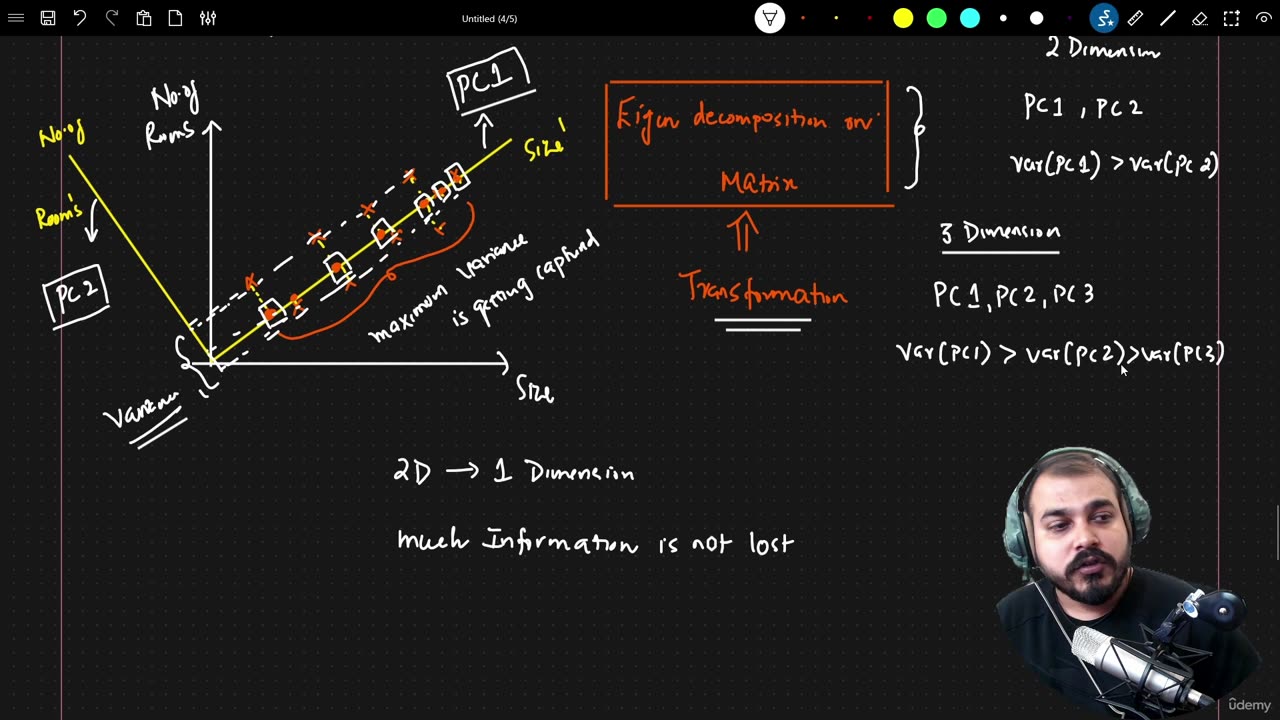 Untitled (4/5)
No. of
Rooms
No. of
Room's
PC2
PC1
Size'
Size
maximum variance
is getting captured
2D → 1 Dimension
much Information is not lost
Eigen decomposition on
Matrix
Transformation
2 Dimension
PC1 , PC2
Var(PC1) > Var(PC2)
3 Dimension
PC1, PC2, PC3
Var(PC1) > Var(PC2) > Var(PC3)
ûdemy